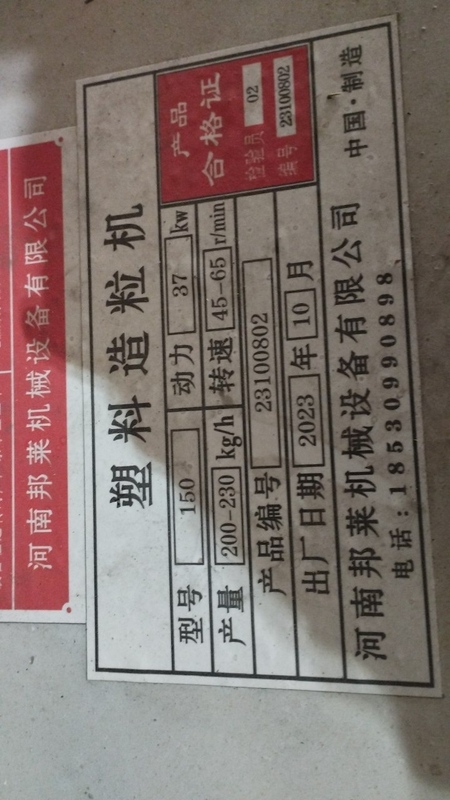 塑料造粒机
产品
合格证
检验员 02
编号 23100802
型号 150 动力 37 kw
产量 200-230 kg/h 转速 45-65 r/min
产品编号 23100802
出厂日期 2023 年 10 月
河南邦莱机械设备有限公司
电话:18530990898
中国·制造
河南邦莱机械设备有限公司